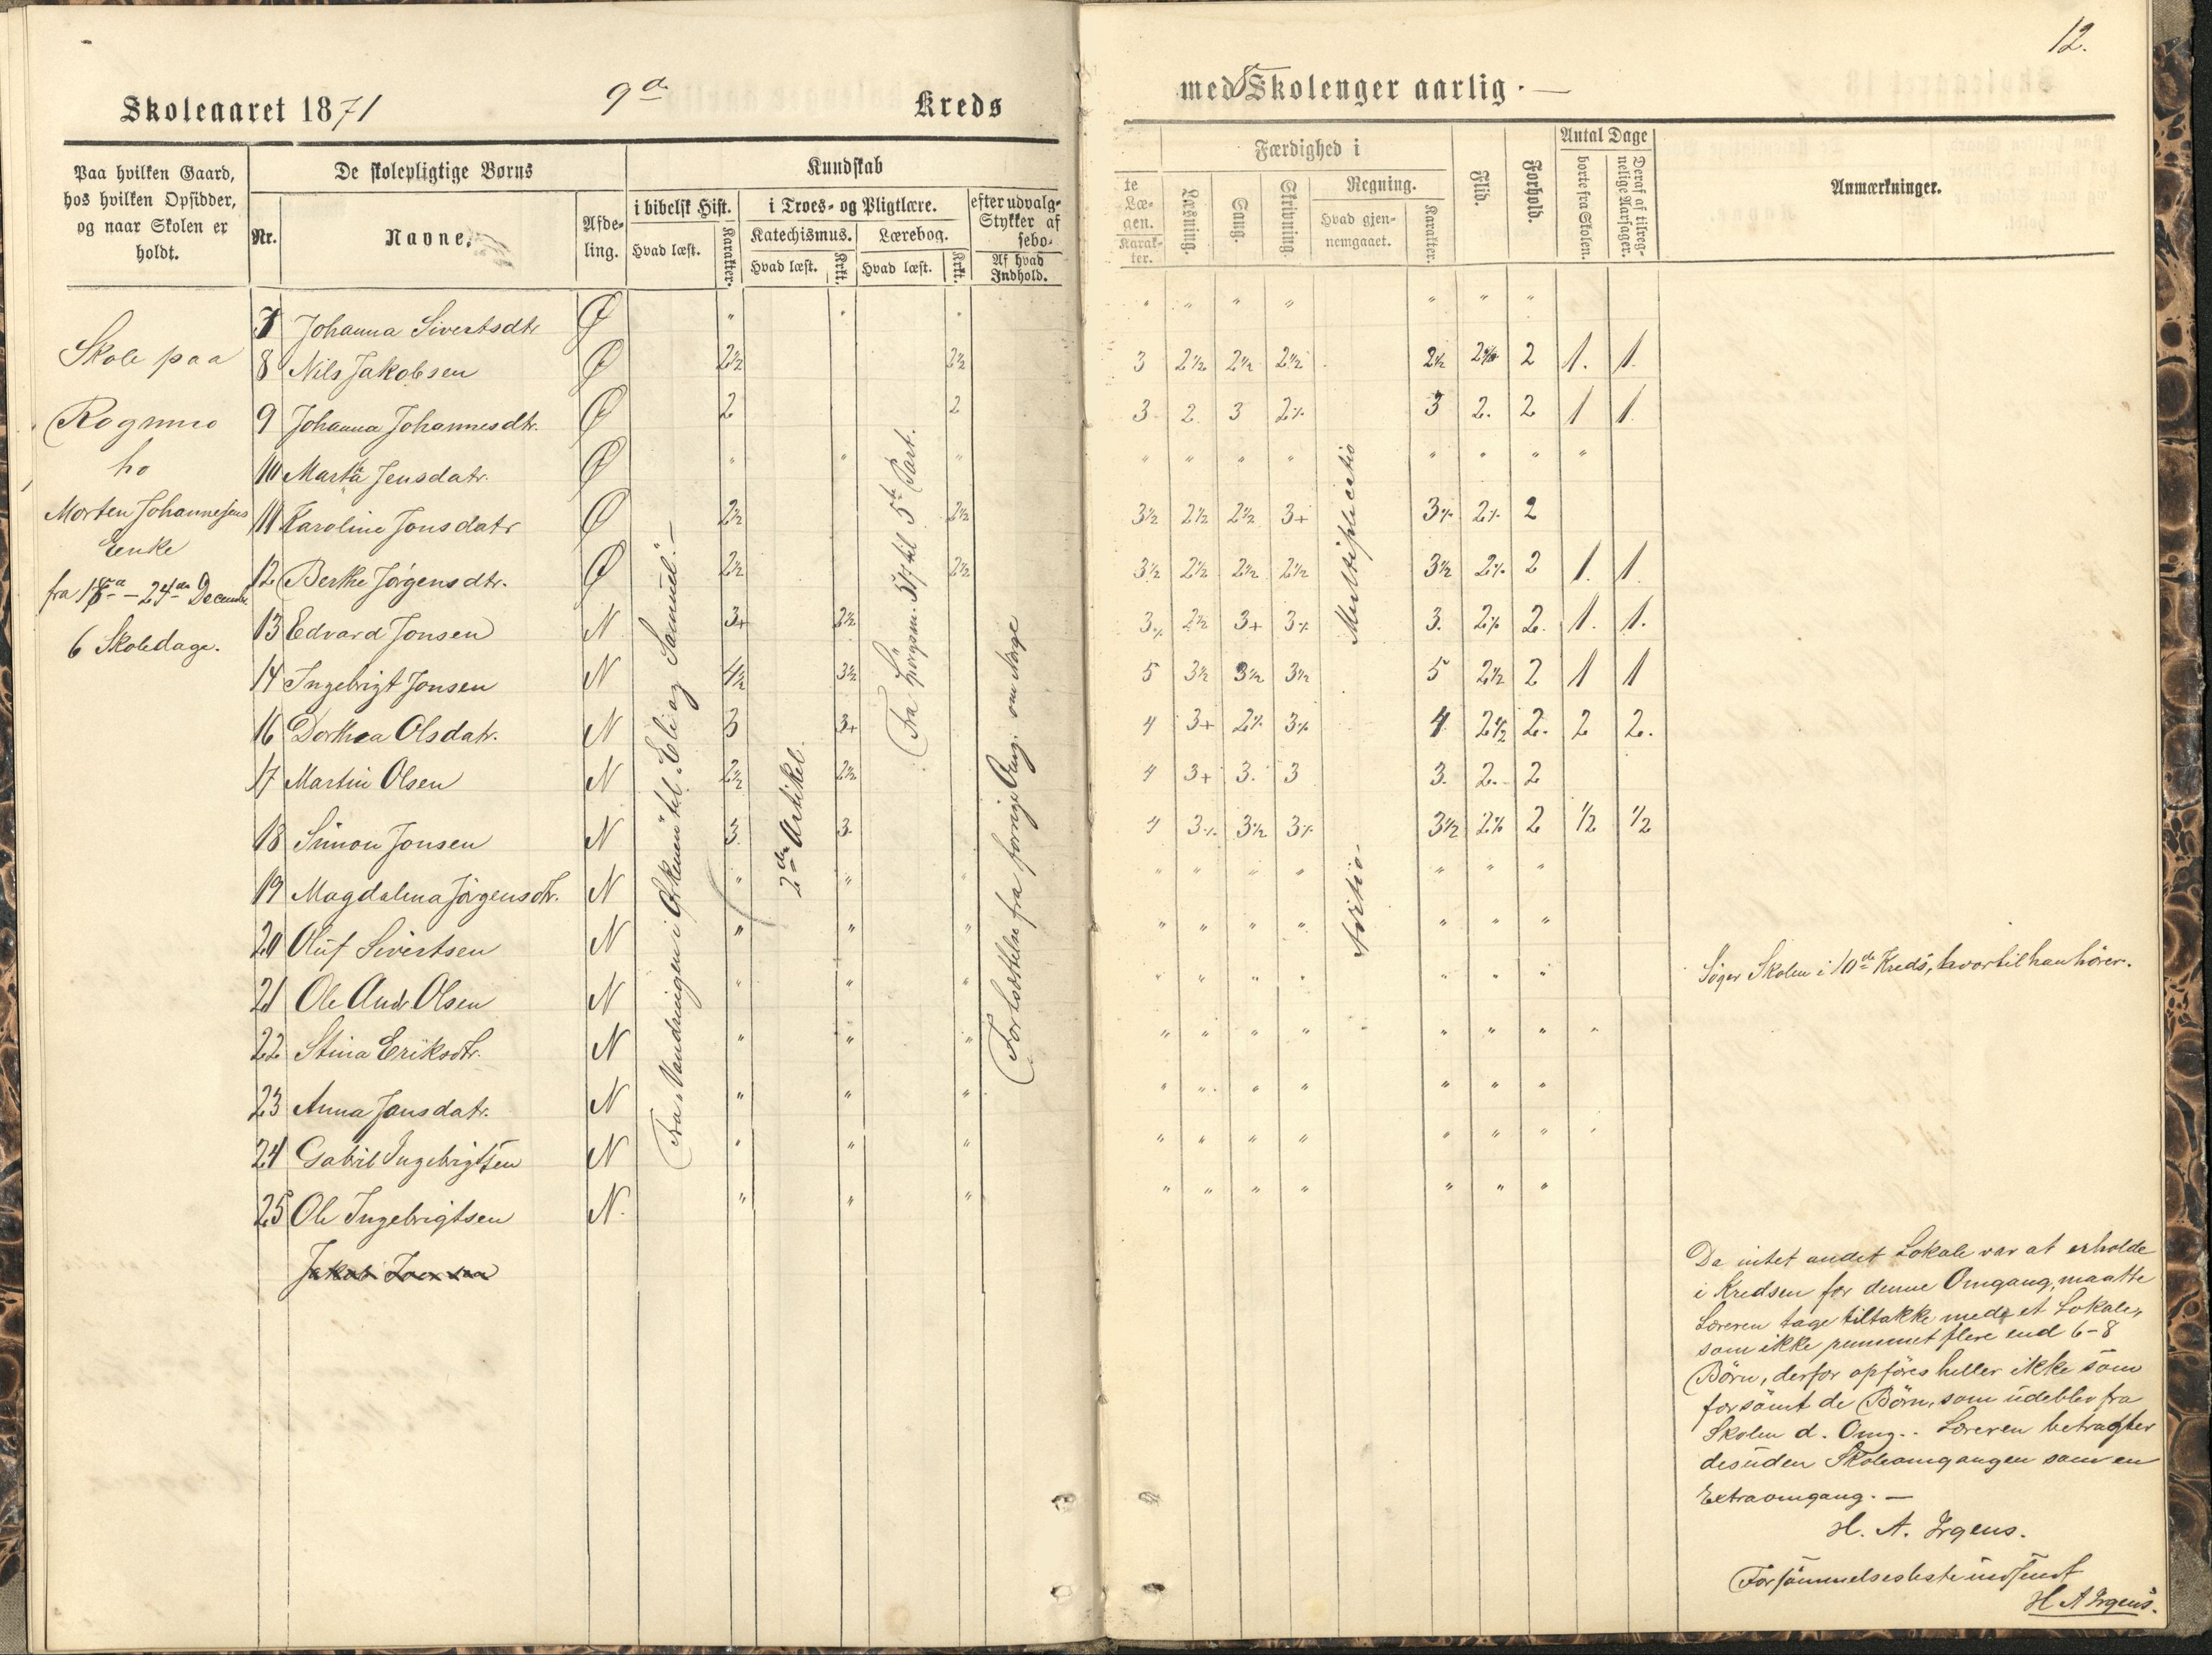 12.
Skoleaaret 1871 9de Kreds med 5 Skolenger aarlig. —
Paa hvilken Gaard, hos hvilken Opsidder, og naar Skolen er holdt.
De skolepligtige Børns
Nr.
Navne.
Afdeling.
Kundskab
i bibelsk Hist.
Hvad læst.
Karakter.
i Troes- og Pligtlære.
Katechismus.
Hvad læst.
Krkt.
Lærebog.
Hvad læst.
Krkt.
efter udvalg-
Stykker af
sebo-
Af hvad
Indhold.
te
Læ-
gen.
Karak-
ter.
Færdighed i
Læsning.
Sang.
Skrivning.
Regning.
Hvad gjen-
nemgaaet.
Karakter.
Flid.
Forhold.
Antal Dage
borte fra Skolen.
Deraf af tilreg-
nelige Aarsager.
Anmærkninger.
Skole paa
Rognmo
ho
Morten Johannesens
Enke
fra 18de – 24de Decembr.
6 Skoledage.
Fra „Vandringen i Ørkenen" til „Eli og Samuel". —
2den Artikel.
Fra Spørgsm. 517 til 5te Part.
Fortsættelse fra forrige Omg. om Norge
Multiplicatio
Additio
7 Johanna Sivertsdtr Ø " " " " " " " " " "
8 Nils Jakobsen Ø 2½ 2½ 3 2½ 2½ 2½ 2½ 2% 2 1. 1.
9 Johanna Johannesdtr. Ø 2 2 3 2 3 2% 3 2. 2 1 1
10 Marta Jensdatr. Ø " " " " " " " " " " "
11 Karoline Jonsdatr Ø 2½ 2½ 3½ 2½ 2½ 3+ 3% 2% 2
12 Berthe Jørgensdtr. Ø 2½ 2½ 3½ 2½ 2½ 2½ 3½ 2% 2 1. 1
13 Edvard Jonsen N 3+ 2½ 3% 2½ 3+ 3% 3. 2% 2. 1. 1.
14 Ingebrigt Jonsen N 4½ 3½ 5 3½ 3½ 3½ 5 2½ 2 1 1
16 Dorthea Olsdatr. N 3 3+ 4 3+ 2% 3% 4 2½ 2. 2 2.
17 Martin Olsen N 2½ 2½ 4 3+ 3. 3 3. 2. 2
18 Simon Jonsen N 3. 3. 4 3% 3½ 3% 3½ 2% 2 ½ ½
19 Magdalena Jörgensdtr. N " " " " " " " " " "
20 Oluf Sivertsen N " " " " " " " " " "
21 Ole Andr. Olsen N " " " " " " " " " " Søger Skolen i 10de Kreds, hvortil han hører.
22 Stina Eriksdtr. N " " " " " " " " " " "
23 Anna Jansdatr. N " " " " " " " " " "
24 Gabril Ingebrigtsen N " " " " " " " " " " "
25 Ole Ingebrigtsen N. " " " " " " " " " "
Jakob Jonsen
Da intet andet Lokale var at erholde
i Kredsen for denne Omgang, maatte
Læreren tage tiltakke med et Lokale,
som ikke rummet flere end 6–8
Børn, derfor opføres heller ikke som
forsømt de Børn, som udeblev fra
Skolen d. Omg.. Læreren betragter
desuden Skoleomgangen som en
Extraomgang. —
H. A. Irgens.
Forsømmelsesliste indsendt
H A Irgens.